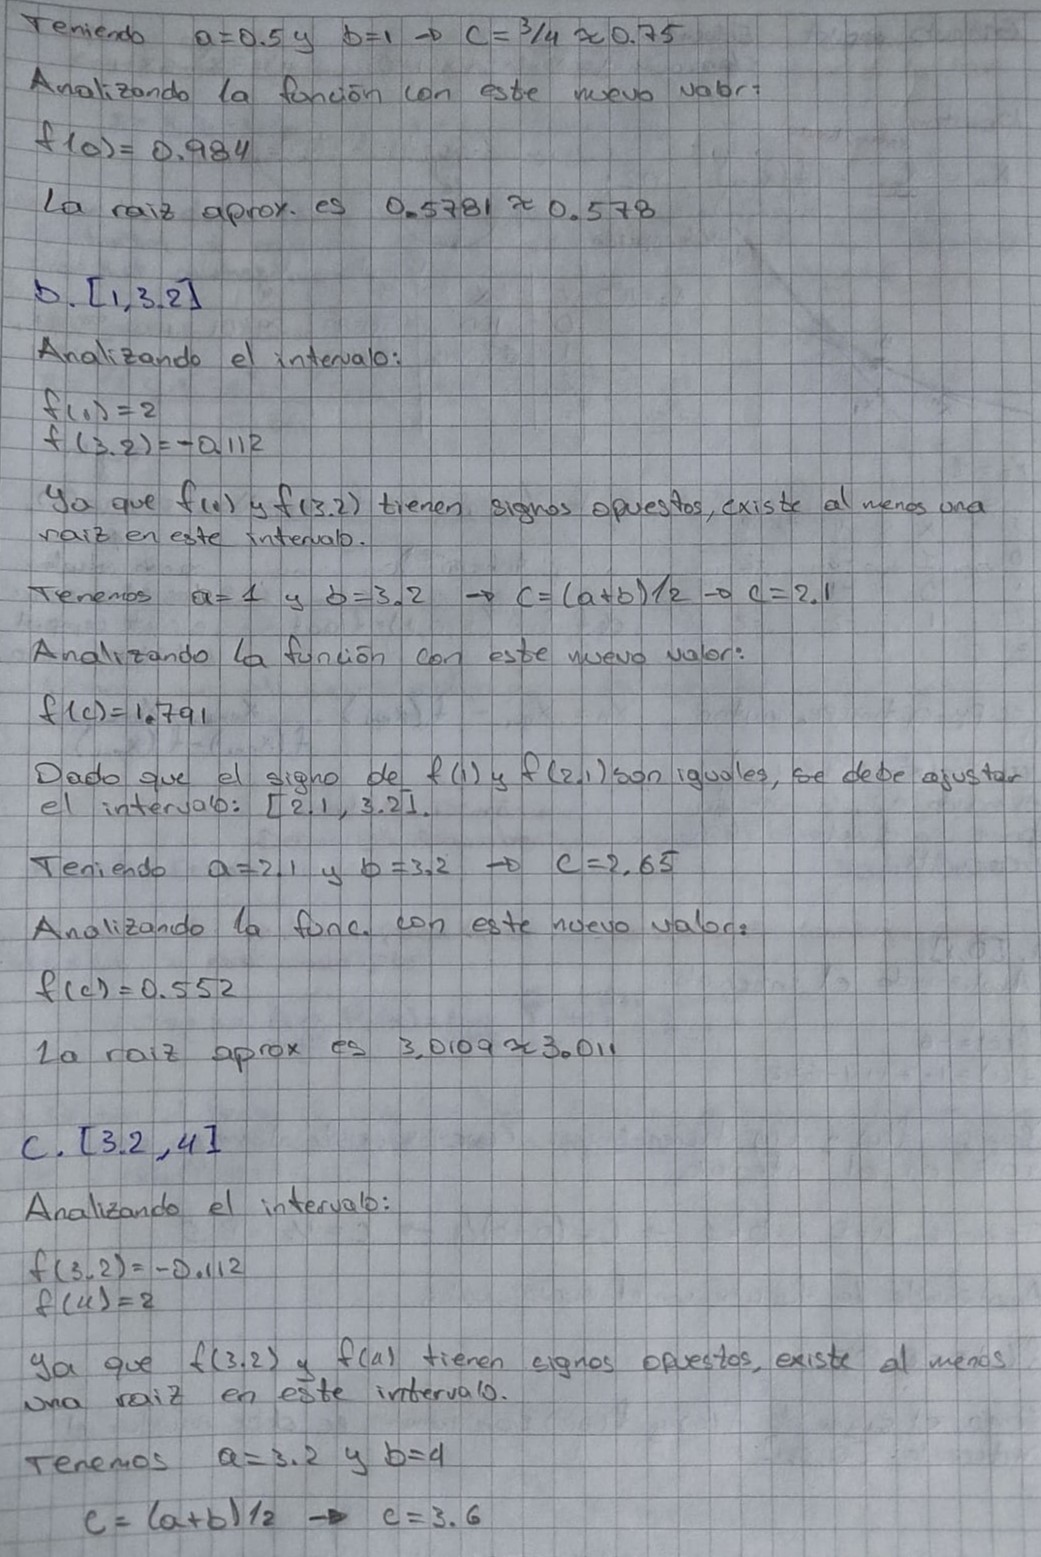 Teniendo a=0.5 y b=1 → c=3/4 ≈ 0.75
Analizando la función con este nuevo valor:
f(c)= 0.984
La raiz aprox. es 0.5781 ≈ 0.578
b. [1,3.2]
Analizando el intervalo:
f(1)=2
f(3.2)=-0.112
Ya que f(1) y f(3.2) tienen signos opuestos, existe al menos una
raiz en este intervalo.
Tenemos a=1 y b=3.2 → c=(a+b)/2 → c=2.1
Analizando la función con este nuevo valor:
f(c)=1.791
Dado que el signo de f(1) y f(2.1) son iguales, se debe ajustar
el intervalo: [2.1, 3.2].
Teniendo a=2.1 y b=3.2 → c=2.65
Analizando la func. con este nuevo valor:
f(c)=0.552
La raiz aprox es 3.0109 ≈ 3.011
C. [3.2,4]
Analizando el intervalo:
f(3.2)=-0.112
f(4)=2
Ya que f(3.2) y f(4) tienen signos opuestos, existe al menos
una raiz en este intervalo.
Tenemos a=3.2 y b=4
c=(a+b)/2 → c=3.6